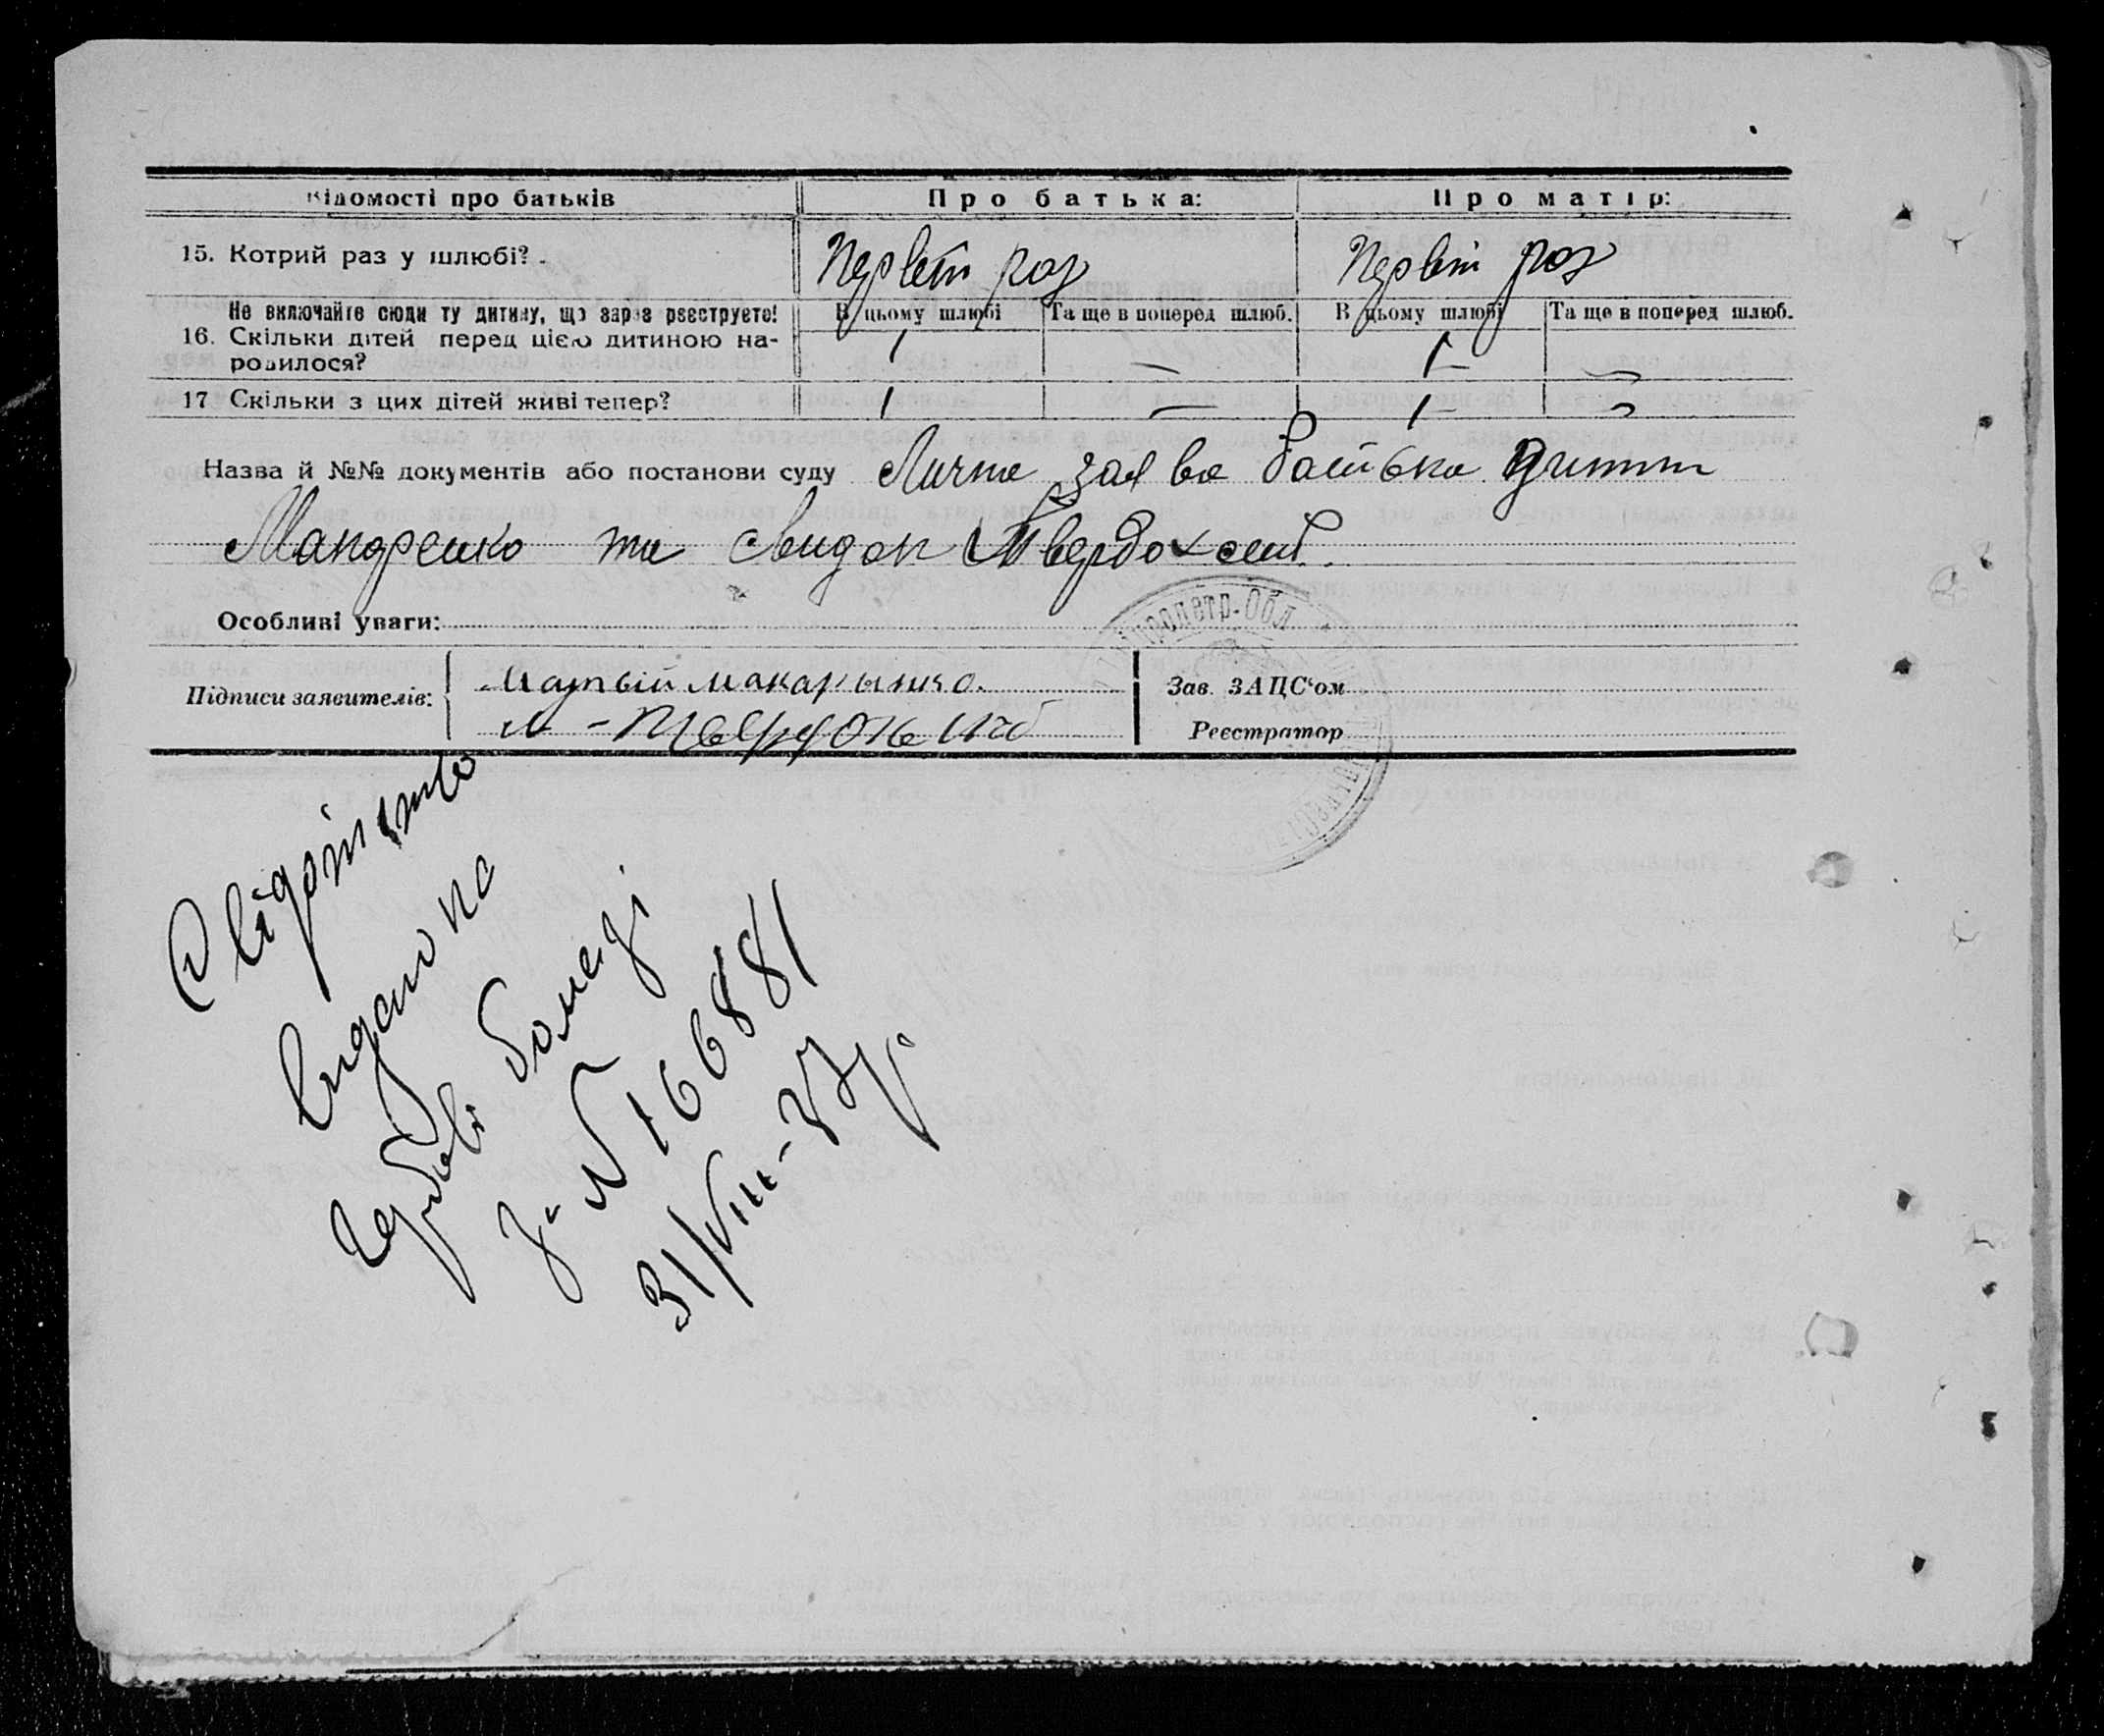 Відомості про батьків Про батька: Про матір:
15. Котрий раз у шлюбі? Первий раз Первий раз
Не включайте сюди ту дитину, що зараз реєструєте! В цьому шлюбі Та ще в поперед шлюб. В цьому шлюбі Та ще в поперед шлюб.
16. Скільки дітей перед цією дитиною на- 1 — 1 —
родилося?
17 Скільки з цих дітей живі тепер? 1 — 1 —
Назва й №№ документів або постанови суду Лична заява батька
та свидок Твердохлеб.
Особливі уваги:
Підписи заявителів: Матвій Макаренко. Зав. ЗАЦС'ом
Твердохліб Реєстратор
петр. Обл
Свідоцтво
видано на
гербові бомазі
з-№ 166881
31/VIII-37р.